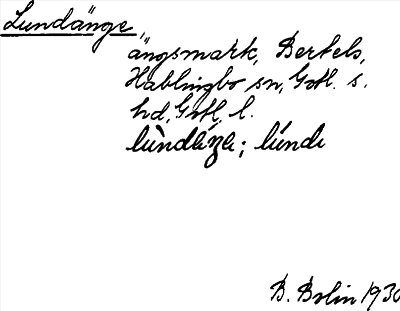 Lundänge,
ängsmark, Bertels,
Hablingbo sn, Gotl. s.
hd, Gotl. l.
lùndäŋe; lúndi
B. Bolin 1930